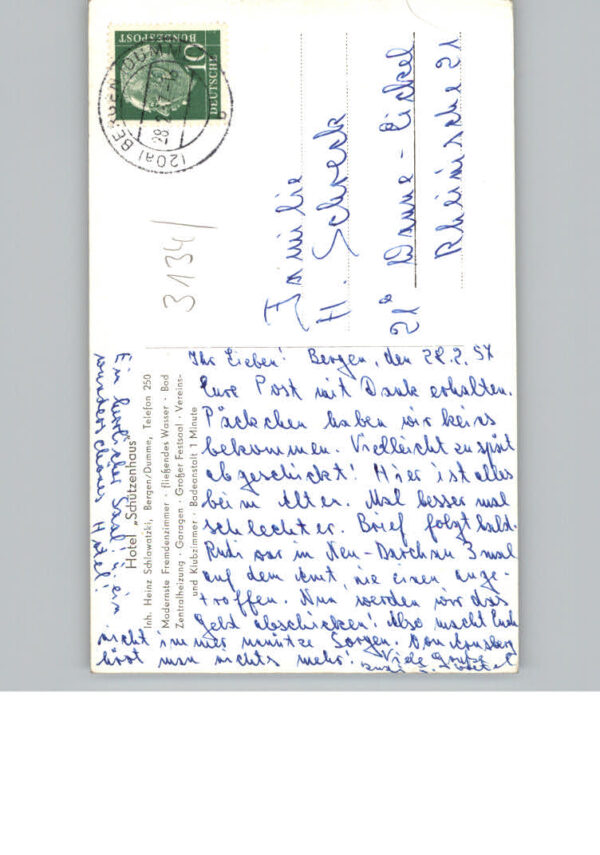 DEUTSCHE
BUNDESPOST
10
(20a) BERGEN (DUMME)
3134/
Familie
H. Schreck
21a Wanne-Eickel
Rheinische 21
Hotel „Schützenhaus"
Inh. Heinz Schlawatzki, Bergen/Dumme, Telefon 250
Modernste Fremdenzimmer · fließendes Wasser · Bad
Zentralheizung · Garagen · Großer Festsaal · Vereins-
und Klubzimmer · Badeanstalt 1 Minute
Ihr Lieben! Bergen, den 28.2.57
Eure Post mit Dank erhalten.
Päckchen haben wir keins
bekommen. Vielleicht zu spät
abgeschickt! Hier ist alles
beim Alten. Mal besser mal
schlechter. Brief folgt bald.
Rudi war in Neu-Darchau 3 mal
auf dem Amt, nie einen ange-
troffen. Nun werden wir das
Geld abschicken! Also macht Euch
nicht immer unnütze Sorgen. Von
hört man nichts mehr! Viele Grüße
Ein herrlicher Saal! u. ein
wunderschönes Hotel!